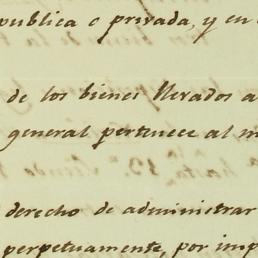 publica o privada, y en
de los bienes llevados a
general pertenece al m
derecho de administrar
perpetuamente, por imp